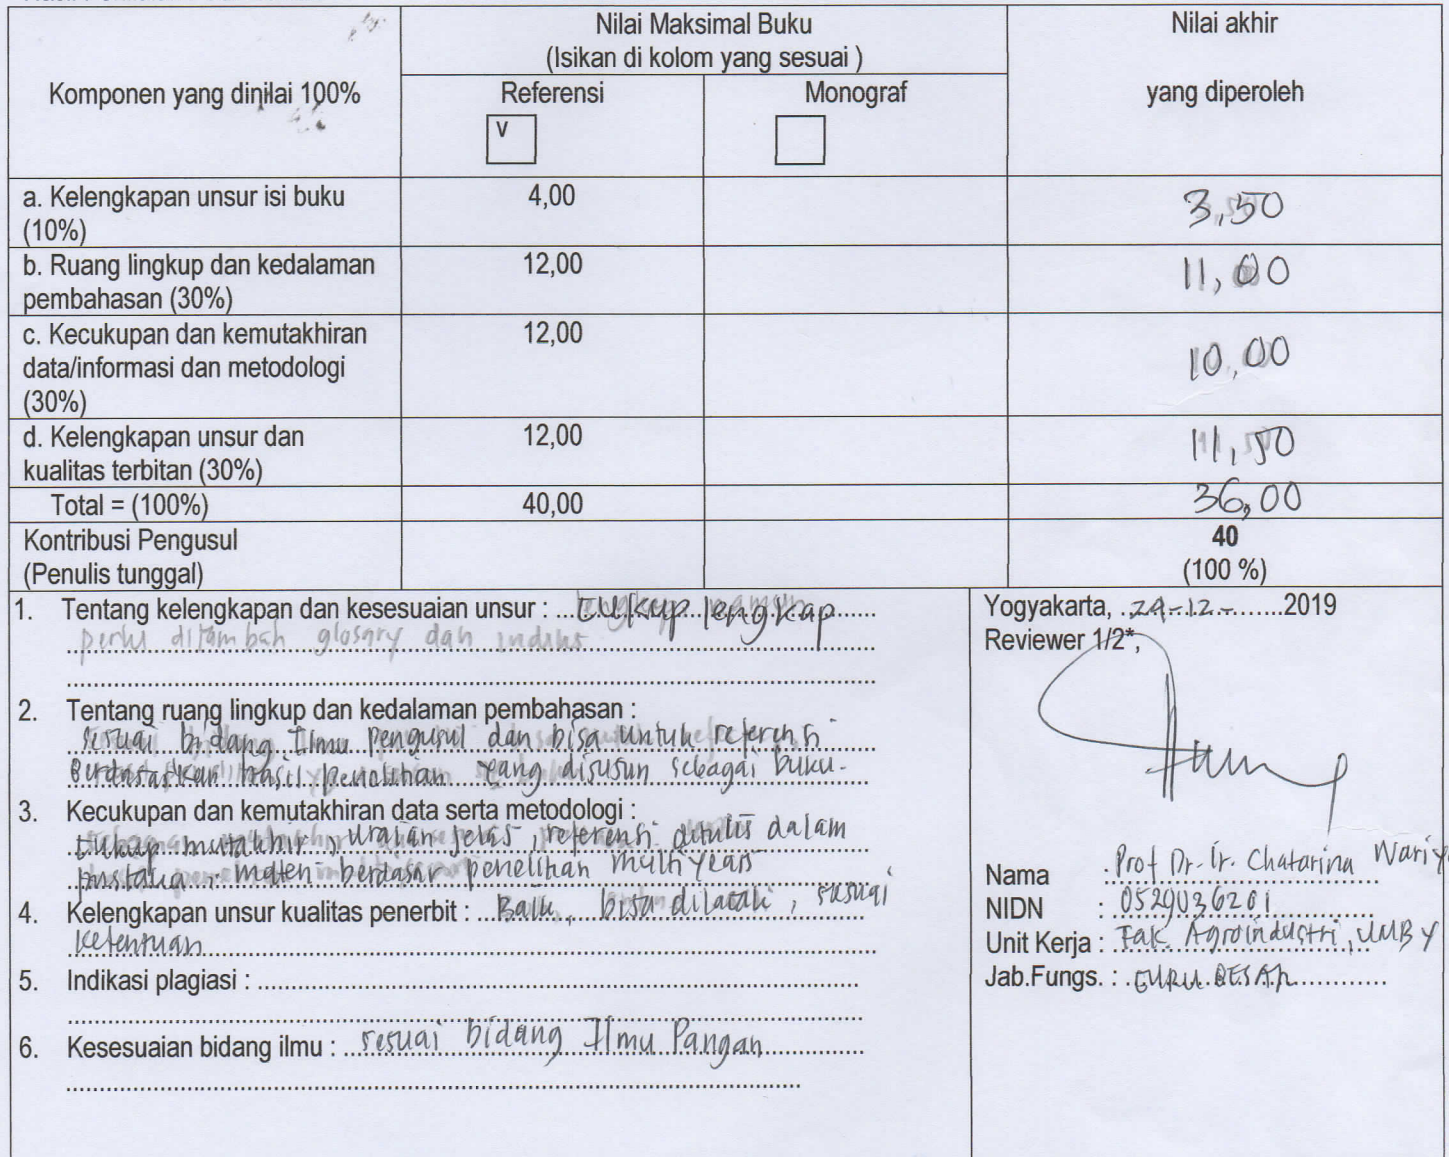 Nilai Maksimal Buku
(Isikan di kolom yang sesuai )
Nilai akhir
yang diperoleh
Komponen yang dinilai 100%
Referensi
Monograf
V
a. Kelengkapan unsur isi buku
(10%)
4,00
3,50
b. Ruang lingkup dan kedalaman
pembahasan (30%)
12,00
11,00
c. Kecukupan dan kemutakhiran
data/informasi dan metodologi
(30%)
12,00
10,00
d. Kelengkapan unsur dan
kualitas terbitan (30%)
12,00
11,50
Total = (100%)
40,00
36,00
Kontribusi Pengusul
(Penulis tunggal)
40
(100 %)
1. Tentang kelengkapan dan kesesuaian unsur : cukup lengkap
perlu ditambah glosary dan indeks
2. Tentang ruang lingkup dan kedalaman pembahasan :
sesuai bidang Ilmu pengusul dan bisa untuk referensi
Berdasarkan hasil penelitian yang disusun sebagai buku.
3. Kecukupan dan kemutakhiran data serta metodologi :
Cukup mutakhir, uraian jelas, referensi ditulis dalam
pustaka, materi berdasar penelitian multi years
4. Kelengkapan unsur kualitas penerbit : Baik, bisa dilacak, sesuai
ketentuan
5. Indikasi plagiasi :
6. Kesesuaian bidang ilmu : sesuai bidang Ilmu Pangan
Yogyakarta, 24-12-2019
Reviewer 1/2*,
Nama : Prof Dr. Ir. Chatarina Wariy
NIDN : 0529036201
Unit Kerja : Fak. Agroindustri, UMBY
Jab.Fungs. : GURU BESAR